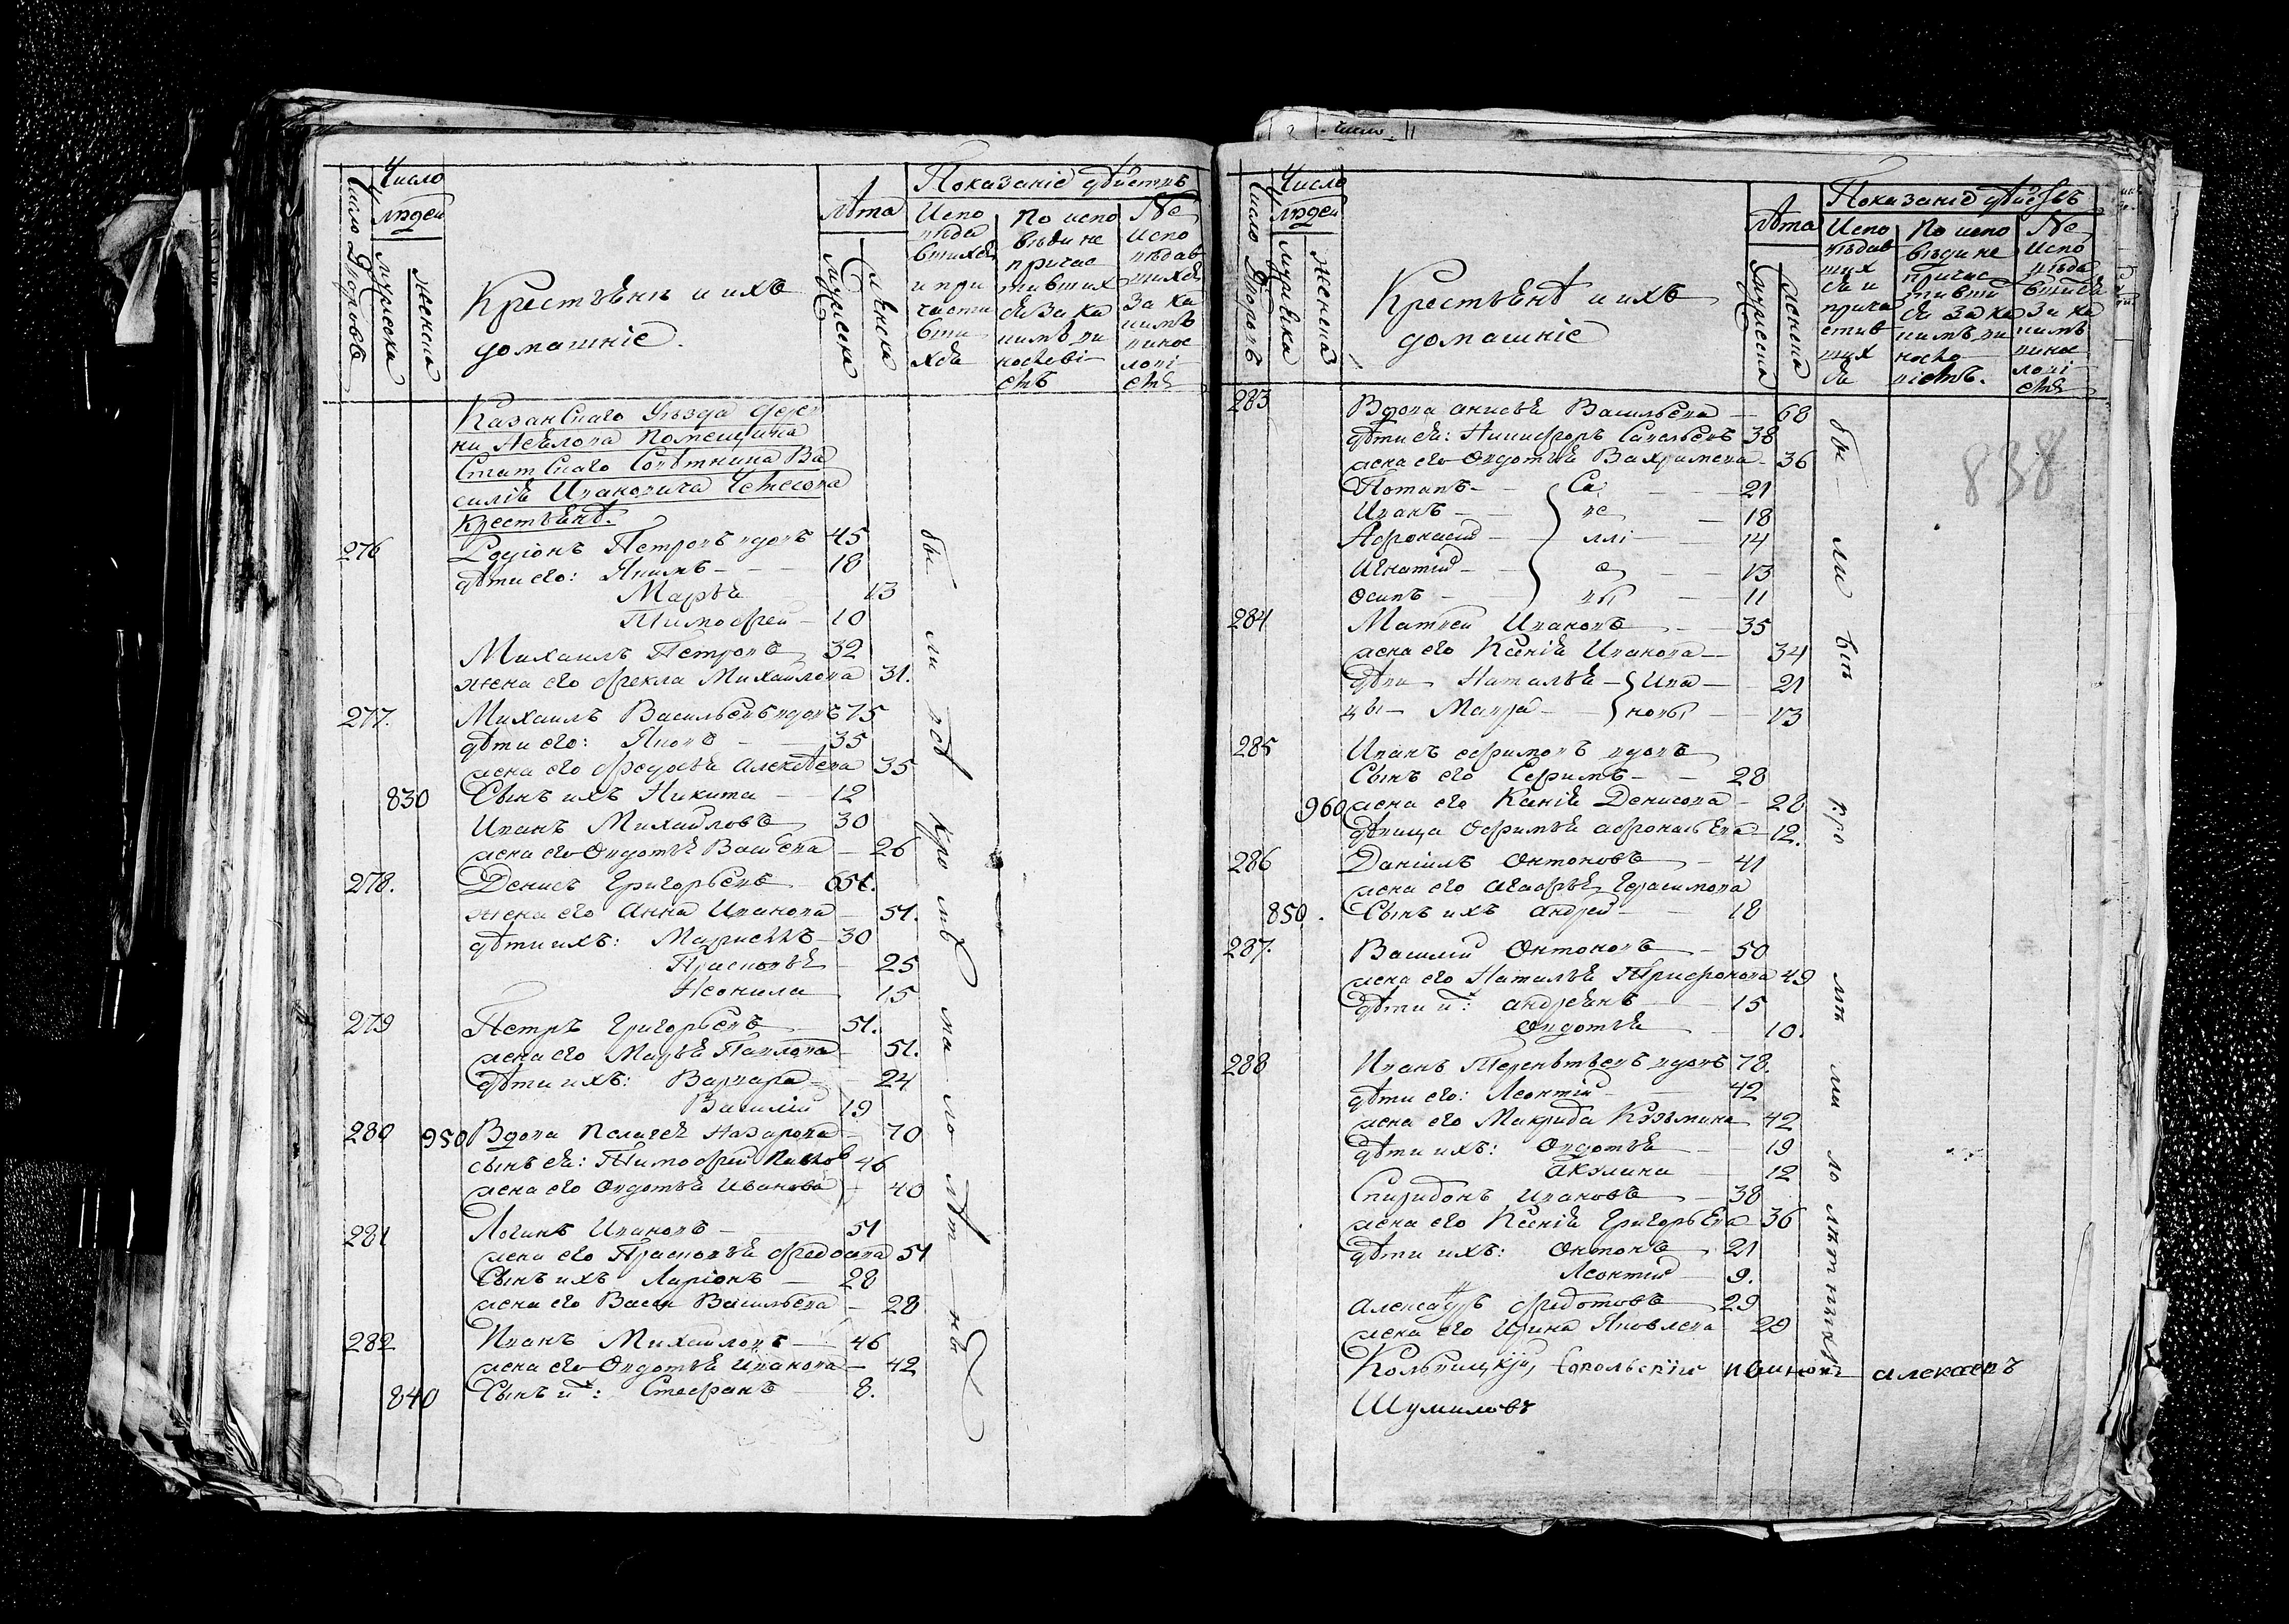 Число Дворовъ
Число людей
Мужеска
Женска
Крестьянъ и ихъ
домашніе.
Лѣта
Мужеска
Женска
Показаніе дѣйствъ
Испо
вѣда
вшихся
и при
части
вши
хся
По испо
вѣди не
причас
тивших
ся за ка
кимъ ви
нословi
емъ
Не
испо
вѣдав
шихся
за ка
кимъ
винос
ловi
емъ
Казанскаго Уѣзда дерев
ни помещика
Статскаго Совѣтника Ва
силія Ивановича
Крестьянѣ.
276 Родіонъ Петровъ вдовъ 45
дѣти его: Якимъ 18
Марья 13
Тимофей 10
Михаилъ Петровъ 32
жена его Фекла Михайлова 31.
277. Михаилъ Васильевъ вдовъ 75
дѣти его: Яковъ 35
жена его Федосья Алексѣева 35
830 Сынъ ихъ Никита 12
Иванъ Михайловъ 30
жена его Овдотья Васильева 26
278. Денисъ Григорьевъ
жена его Анна Иванова 51.
дѣти ихъ: 30
Прасковья 25
Неонила 15
279 Петръ Григорьевъ 51.
жена его Марья Павлова 51.
дѣти ихъ: Варвара 24
Василій 19
280 950 Вдова Пелагея Назарова 70
сынъ ея: Тимофей 46
жена его Овдотья Иванова 40
281 Логинъ Ивановъ 51
жена его Прасковья Федосова 51
Сынъ ихъ Ларіонъ 28
жена его Васса Васильева 28
282 Иванъ Михайловъ 46
жена его Овдотья Иванова 42
840 Сынъ ихъ: Стефанъ 8.
Число Дворовъ
Число людей
Мужеска
Женска
Крестьянѣ и ихъ
домашніе
Лѣта
Мужеска
Женска
Показаніе дѣйствъ
Испо
вѣдав
ших
ся и
прича
стив
ших
ся
По испо
вѣди не
причас
тивши
ся за ка
кимъ ви
носло
віемъ.
Не
испо
вѣда
вшися
за ка
кимъ
винос
лові
емъ
838
283 Вдова Анисья Васильева 68
дѣти ея: Никифоръ Савельевъ 38
жена его Овдотья Вахрамева 36
Потапъ Са 21
Иванъ ве 18
Афонасій ллі 14
Игнатій е 13
Осипъ вы 11
284 Матвей Ивановъ 35
жена его Ксенія Иванова 34
дѣви Наталья Ива 21
цы Мавра новы 13
285 Иванъ Ефимовъ вдовъ
Сынъ его Сефимъ 28
960 жена его Ксенія Денисова 28
дѣвица Офимья Афонасьева 12.
286 Даніилъ Онтоновъ 41
жена его Агафья Герасимова
850. Сынъ ихъ Андрей 18
287. Василій Онтоновъ 50
жена его Наталья Трифонова 49
дѣти ихъ: Андреянъ 15
Овдотья 10.
288 Иванъ Терентьевъ вдовъ 78.
дѣти его: Леонтій 42
жена его Макрида Козьмина 42
дѣти ихъ: Овдотья 19
Акулина 12
Спиридонъ Ивановъ 38
жена его Ксенія Григорьева 36
дѣти ихъ: Онтонъ 21
Леонтій 9.
Александръ Федотовъ 29
жена его Ирина Яковлева 29
Шумиловъ